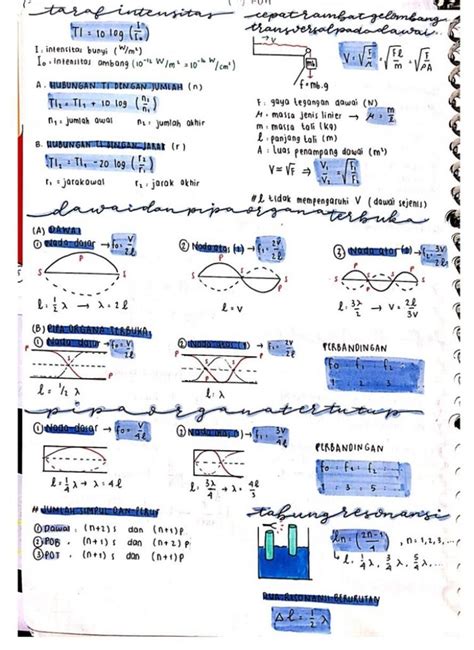 taraf intensitas
TI = 10 log (I/I₀)
I : intensitas bunyi (W/m²)
I₀ = intensitas ambang (10⁻¹² W/m² = 10⁻¹⁶ W/cm²)
A. HUBUNGAN TI DENGAN JUMLAH (n)
n₁ = jumlah awal n₂ = jumlah akhir
B. HUBUNGAN TI DENGAN JARAK (r)
r₁ = jarak awal r₂ = jarak akhir
cepat rambat gelombang
transversal pada dawai
→ V
mb
f = mb.g
V = √F/μ = √Fl/m = √F/ρA
F : gaya tegangan dawai (N)
μ = massa jenis linier → μ = m/l
m = massa tali (kg)
l = panjang tali (m)
A = luas penampang dawai (m²)
# l tidak mempengaruhi V (dawai sejenis)
dawai dan pipa organa terbuka
(A) DAWAI
① Nada dasar → f₀ = V/2l
P
S S
l = 1/2 λ → λ = 2l
② Nada atas (1) → f₁ = 2V/2l
S S S
l = V
③ Nada atas
3V/2l
S S
(B) PIPA ORGANA TERBUKA
① Nada dasar → f₀ = V/2l
P P
l = 1/2 λ
② Nada atas (1) → 2V/2l
l = λ
PERBANDINGAN
f₀ : f₁ : f₂
1 : 2 : 3
pipa organa tertutup
① Nada dasar → f₀ = V/4l
l = 1/4 λ → λ = 4l
f₁ = 3V/4l
l = 3λ/4 → λ = 4l/3
PERBANDINGAN
f₀ : f₁ : f₂
1 : 3 : 5
# JUMLAH SIMPUL DAN PERUT
① Dawai : (n+2) s dan (n+1) p
② POB : (n+1) s dan (n+2) p
③ POT : (n+1) s dan (n+1) p
tabung resonansi
ln = (2n-1/4) , n = 1, 2, 3, ...
l = 1/4 λ, 3/4 λ, 5/4 λ ...
DUA RESONANSI BERURUTAN
Δl = 1/2 λ